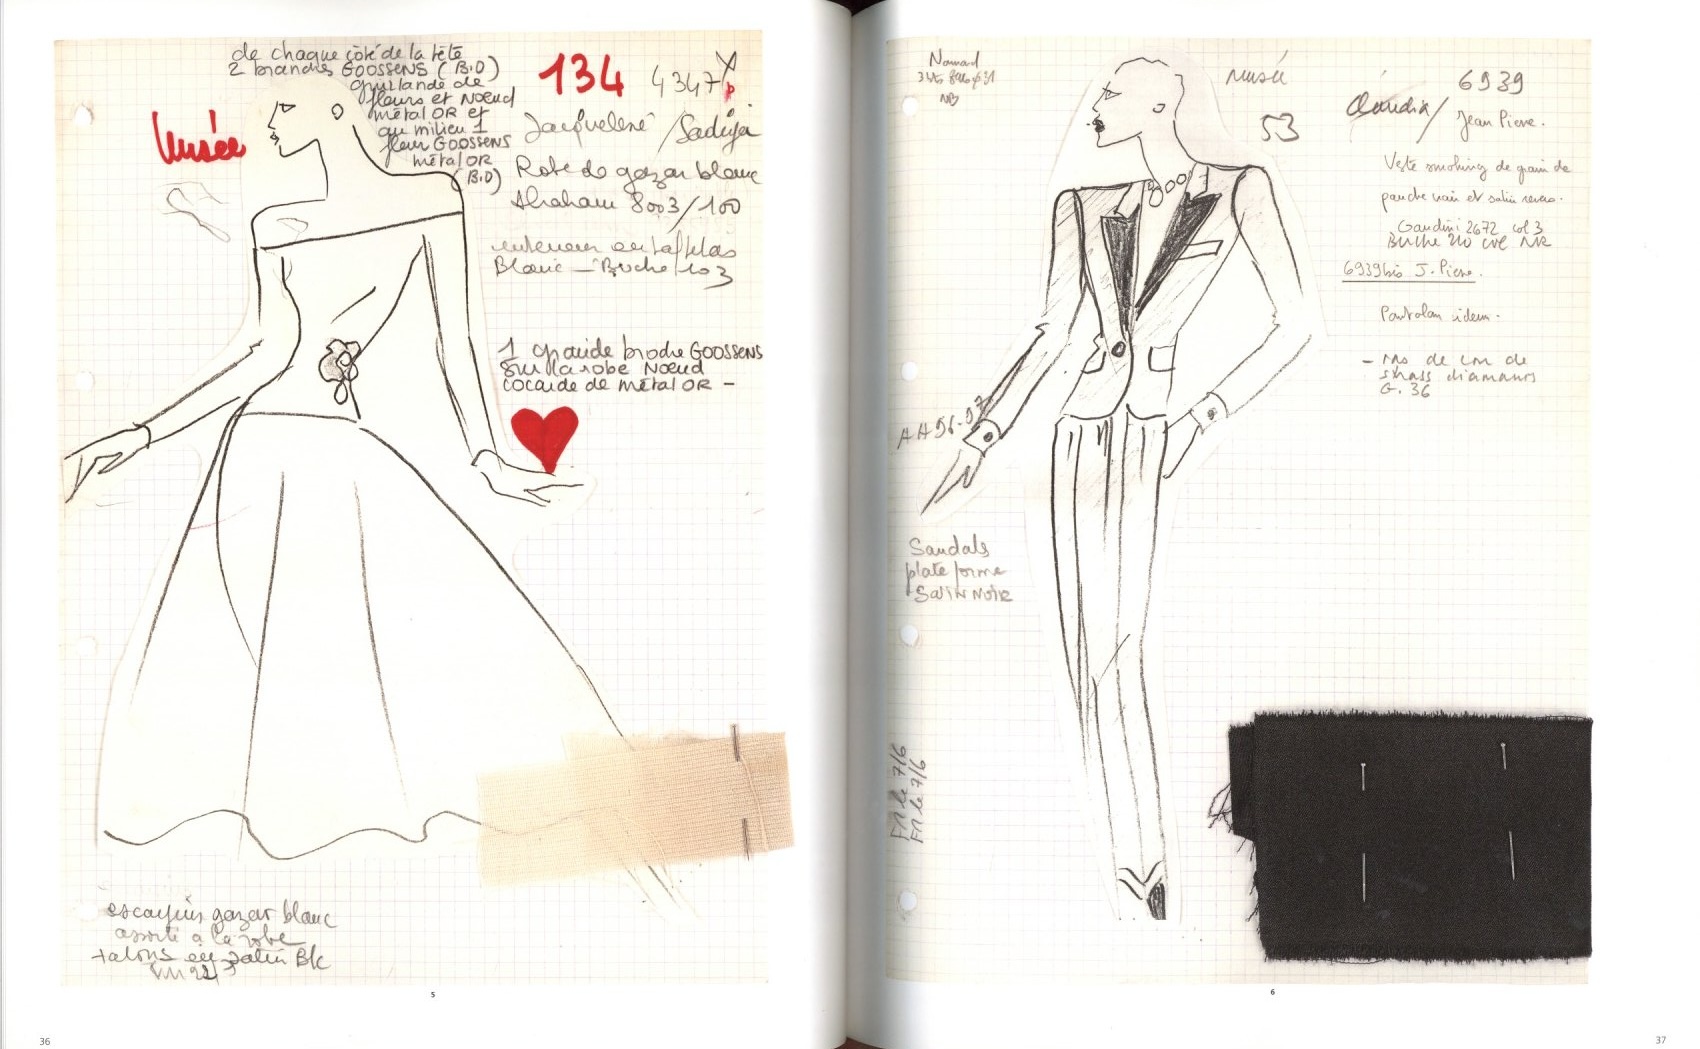 de chaque côté de la tête
2 branches GOOSSENS (B.O)
guirlande de
fleurs et Nœud
métal OR et
au milieu 1
fleur GOOSSENS
métal OR
(B.O)
Musée
134
4347
Jacqueline / Sadiya
Robe de gazar blanc
Abraham 8003/100
en taffetas
Blanc — Buche 103
1 grande broche GOOSSENS
sur la robe Nœud
cocarde de métal OR —
escarpins gazar blanc
assorti à la robe
talons en satin Blc
5
36
Nomad
NB
musée
53
6939
Claudia/
Jean Pierre.
Veste smoking de grain de
poudre noir et satin revers.
Gandini 2672 col 3
Buche 210 col NR
6939bis J. Pierre.
Pantalon idem.
- de
strass diamants
G. 36
AA96-97
Sandals
plate forme
Satin Noir
7/6
7/6
6
37